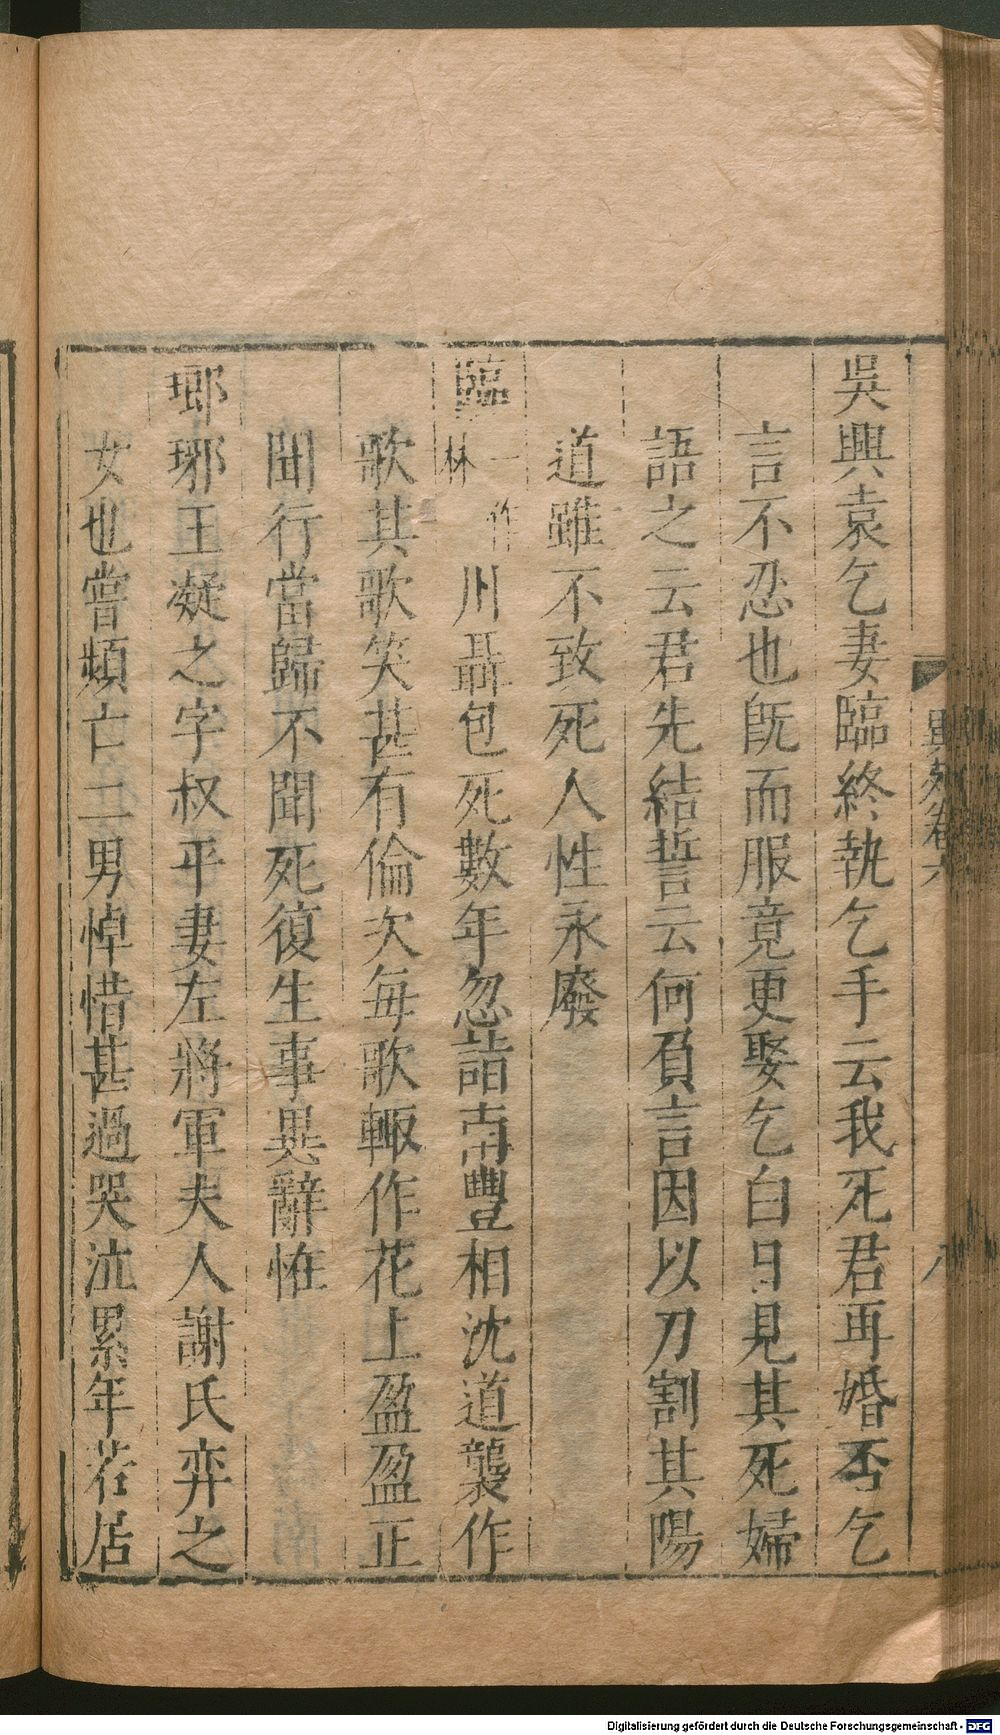 吳興袁乞妻臨終執乞手云我死君再婚否乞
言不忍也旣而服竟更娶乞白日見其死婦
語之云君先結誓云何負言因以刀割其陽
道雖不致死人性永廢
臨一作林川聶包死數年忽詣南豐相沈道襲作
歌其歌笑甚有倫次每歌輙作花上盈盈正
聞行當歸不聞死復生事異辭恠
瑯琊王凝之字叔平妻左將軍夫人謝氏弈之
女也嘗頻亡二男悼惜甚過哭泣累年若居
異苑卷六
八
Digitalisierung gefördert durch die Deutsche Forschungsgemeinschaft - DFG